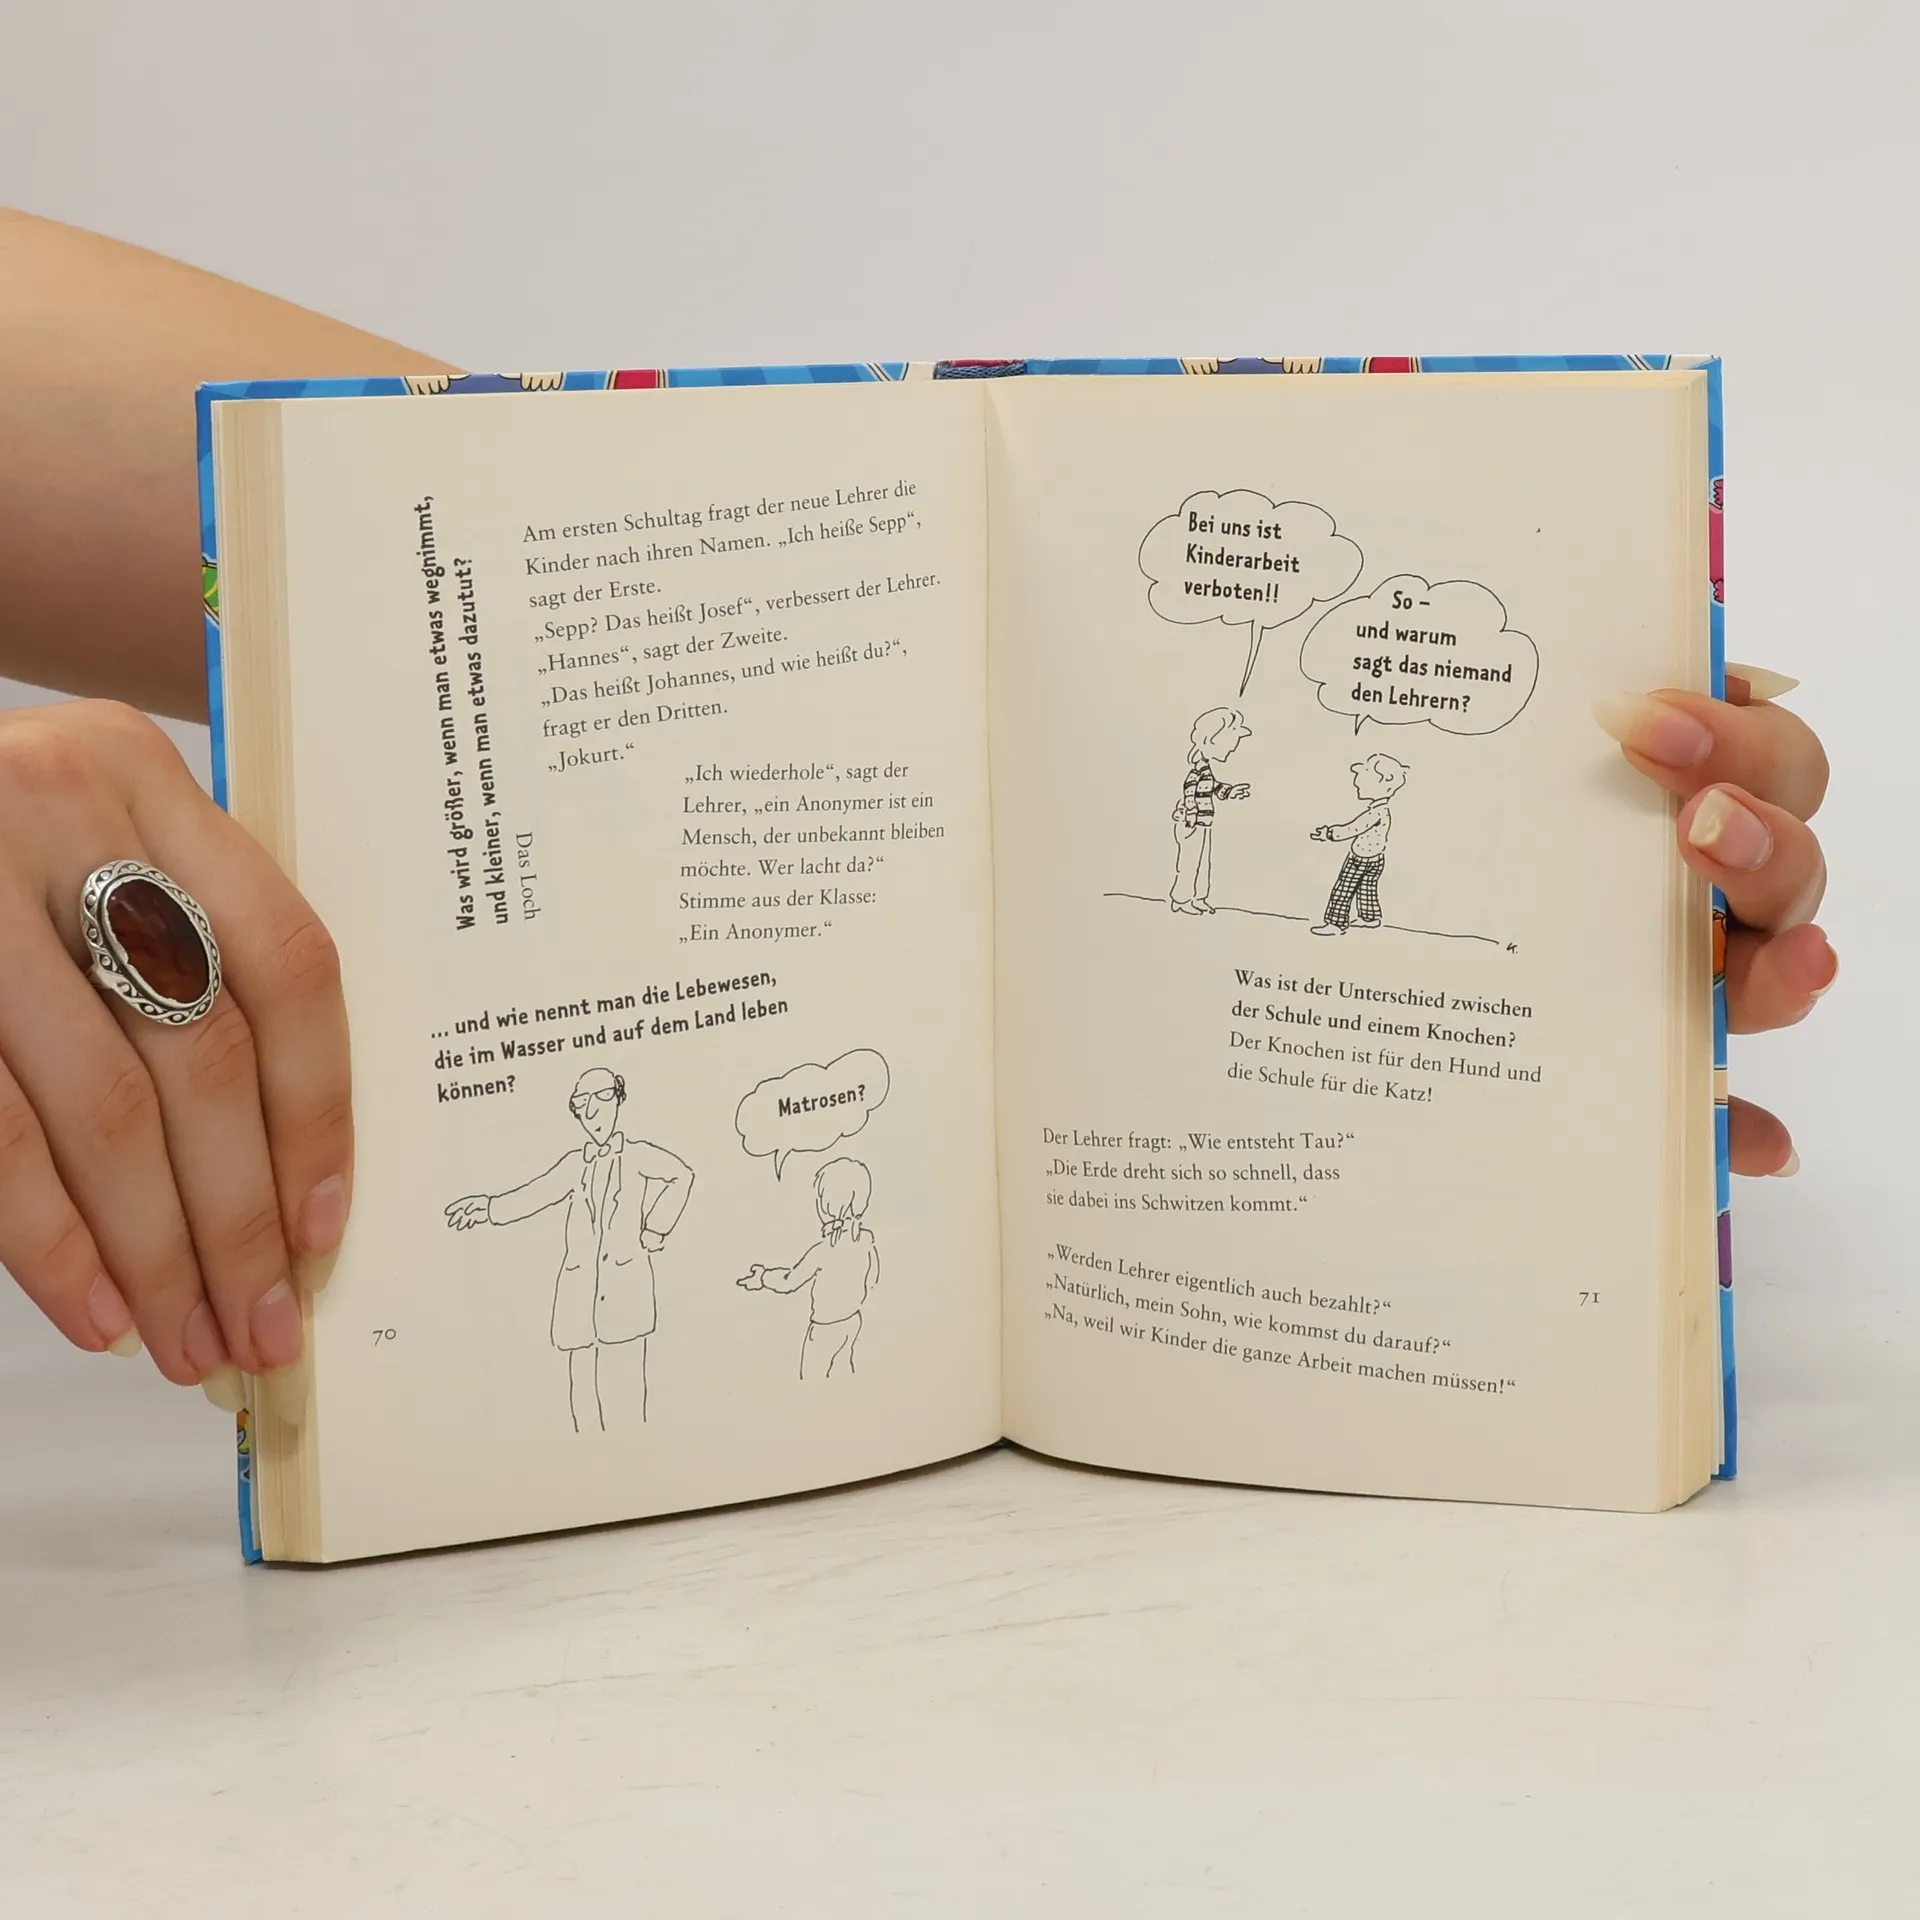 Was wird größer, wenn man etwas wegnimmt,
und kleiner, wenn man etwas dazutut?
Das Loch
Am ersten Schultag fragt der neue Lehrer die
Kinder nach ihren Namen. „Ich heiße Sepp“,
sagt der Erste.
„Sepp? Das heißt Josef“, verbessert der Lehrer.
„Hannes“, sagt der Zweite.
„Das heißt Johannes, und wie heißt du?“,
fragt er den Dritten.
„Jokurt.“
„Ich wiederhole“, sagt der
Lehrer, „ein Anonymer ist ein
Mensch, der unbekannt bleiben
möchte. Wer lacht da?“
Stimme aus der Klasse:
„Ein Anonymer.“
... und wie nennt man die Lebewesen,
die im Wasser und auf dem Land leben
können?
Matrosen?
70
Bei uns ist
Kinderarbeit
verboten!!
So –
und warum
sagt das niemand
den Lehrern?
K.
Was ist der Unterschied zwischen
der Schule und einem Knochen?
Der Knochen ist für den Hund und
die Schule für die Katz!
Der Lehrer fragt: „Wie entsteht Tau?“
„Die Erde dreht sich so schnell, dass
sie dabei ins Schwitzen kommt.“
„Werden Lehrer eigentlich auch bezahlt?“
„Natürlich, mein Sohn, wie kommst du darauf?“
„Na, weil wir Kinder die ganze Arbeit machen müssen!“
71